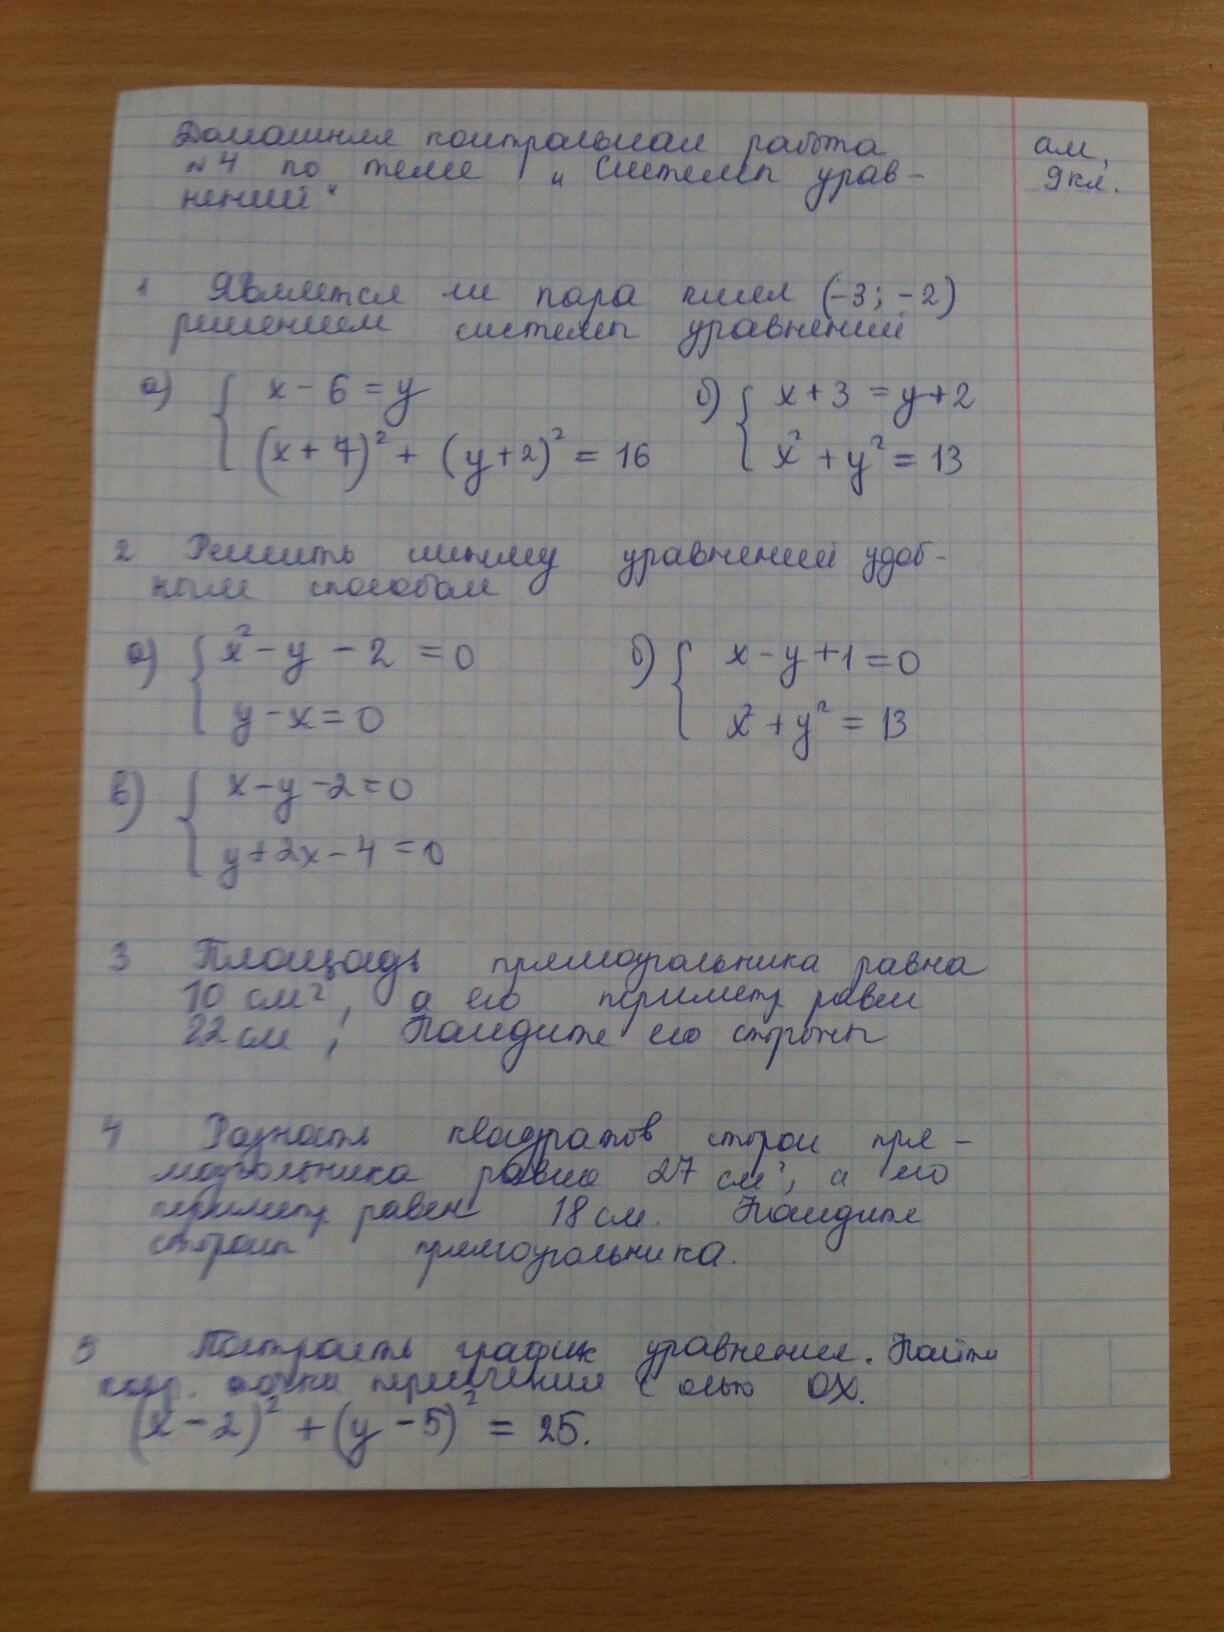 Домашняя контрольная работа
ам,
№4 по теме „Системы урав-
9кл.
нений“
1 Является ли пара чисел (-3; -2)
решением системы уравнений
а) { x - 6 = y
(x + 7)² + (y+2)² = 16
б) { x + 3 = y + 2
x² + y² = 13
2 Решить систему уравнений удоб-
ным способом
а) { x² - y - 2 = 0
y - x = 0
б) { x - y + 1 = 0
x² + y² = 13
в) { x - y - 2 = 0
y + 2x - 4 = 0
3 Площадь прямоугольника равна
10 см², а его периметр равен
22 см, Найдите его стороны
4 Разность квадратов сторон пря-
моугольника равна 27 см², а его
периметр равен 18 см. Найдите
стороны прямоугольника.
5 Построить график уравнения. Найти
коор. точки пересечения с осью OX.
(x - 2)² + (y - 5)² = 25.